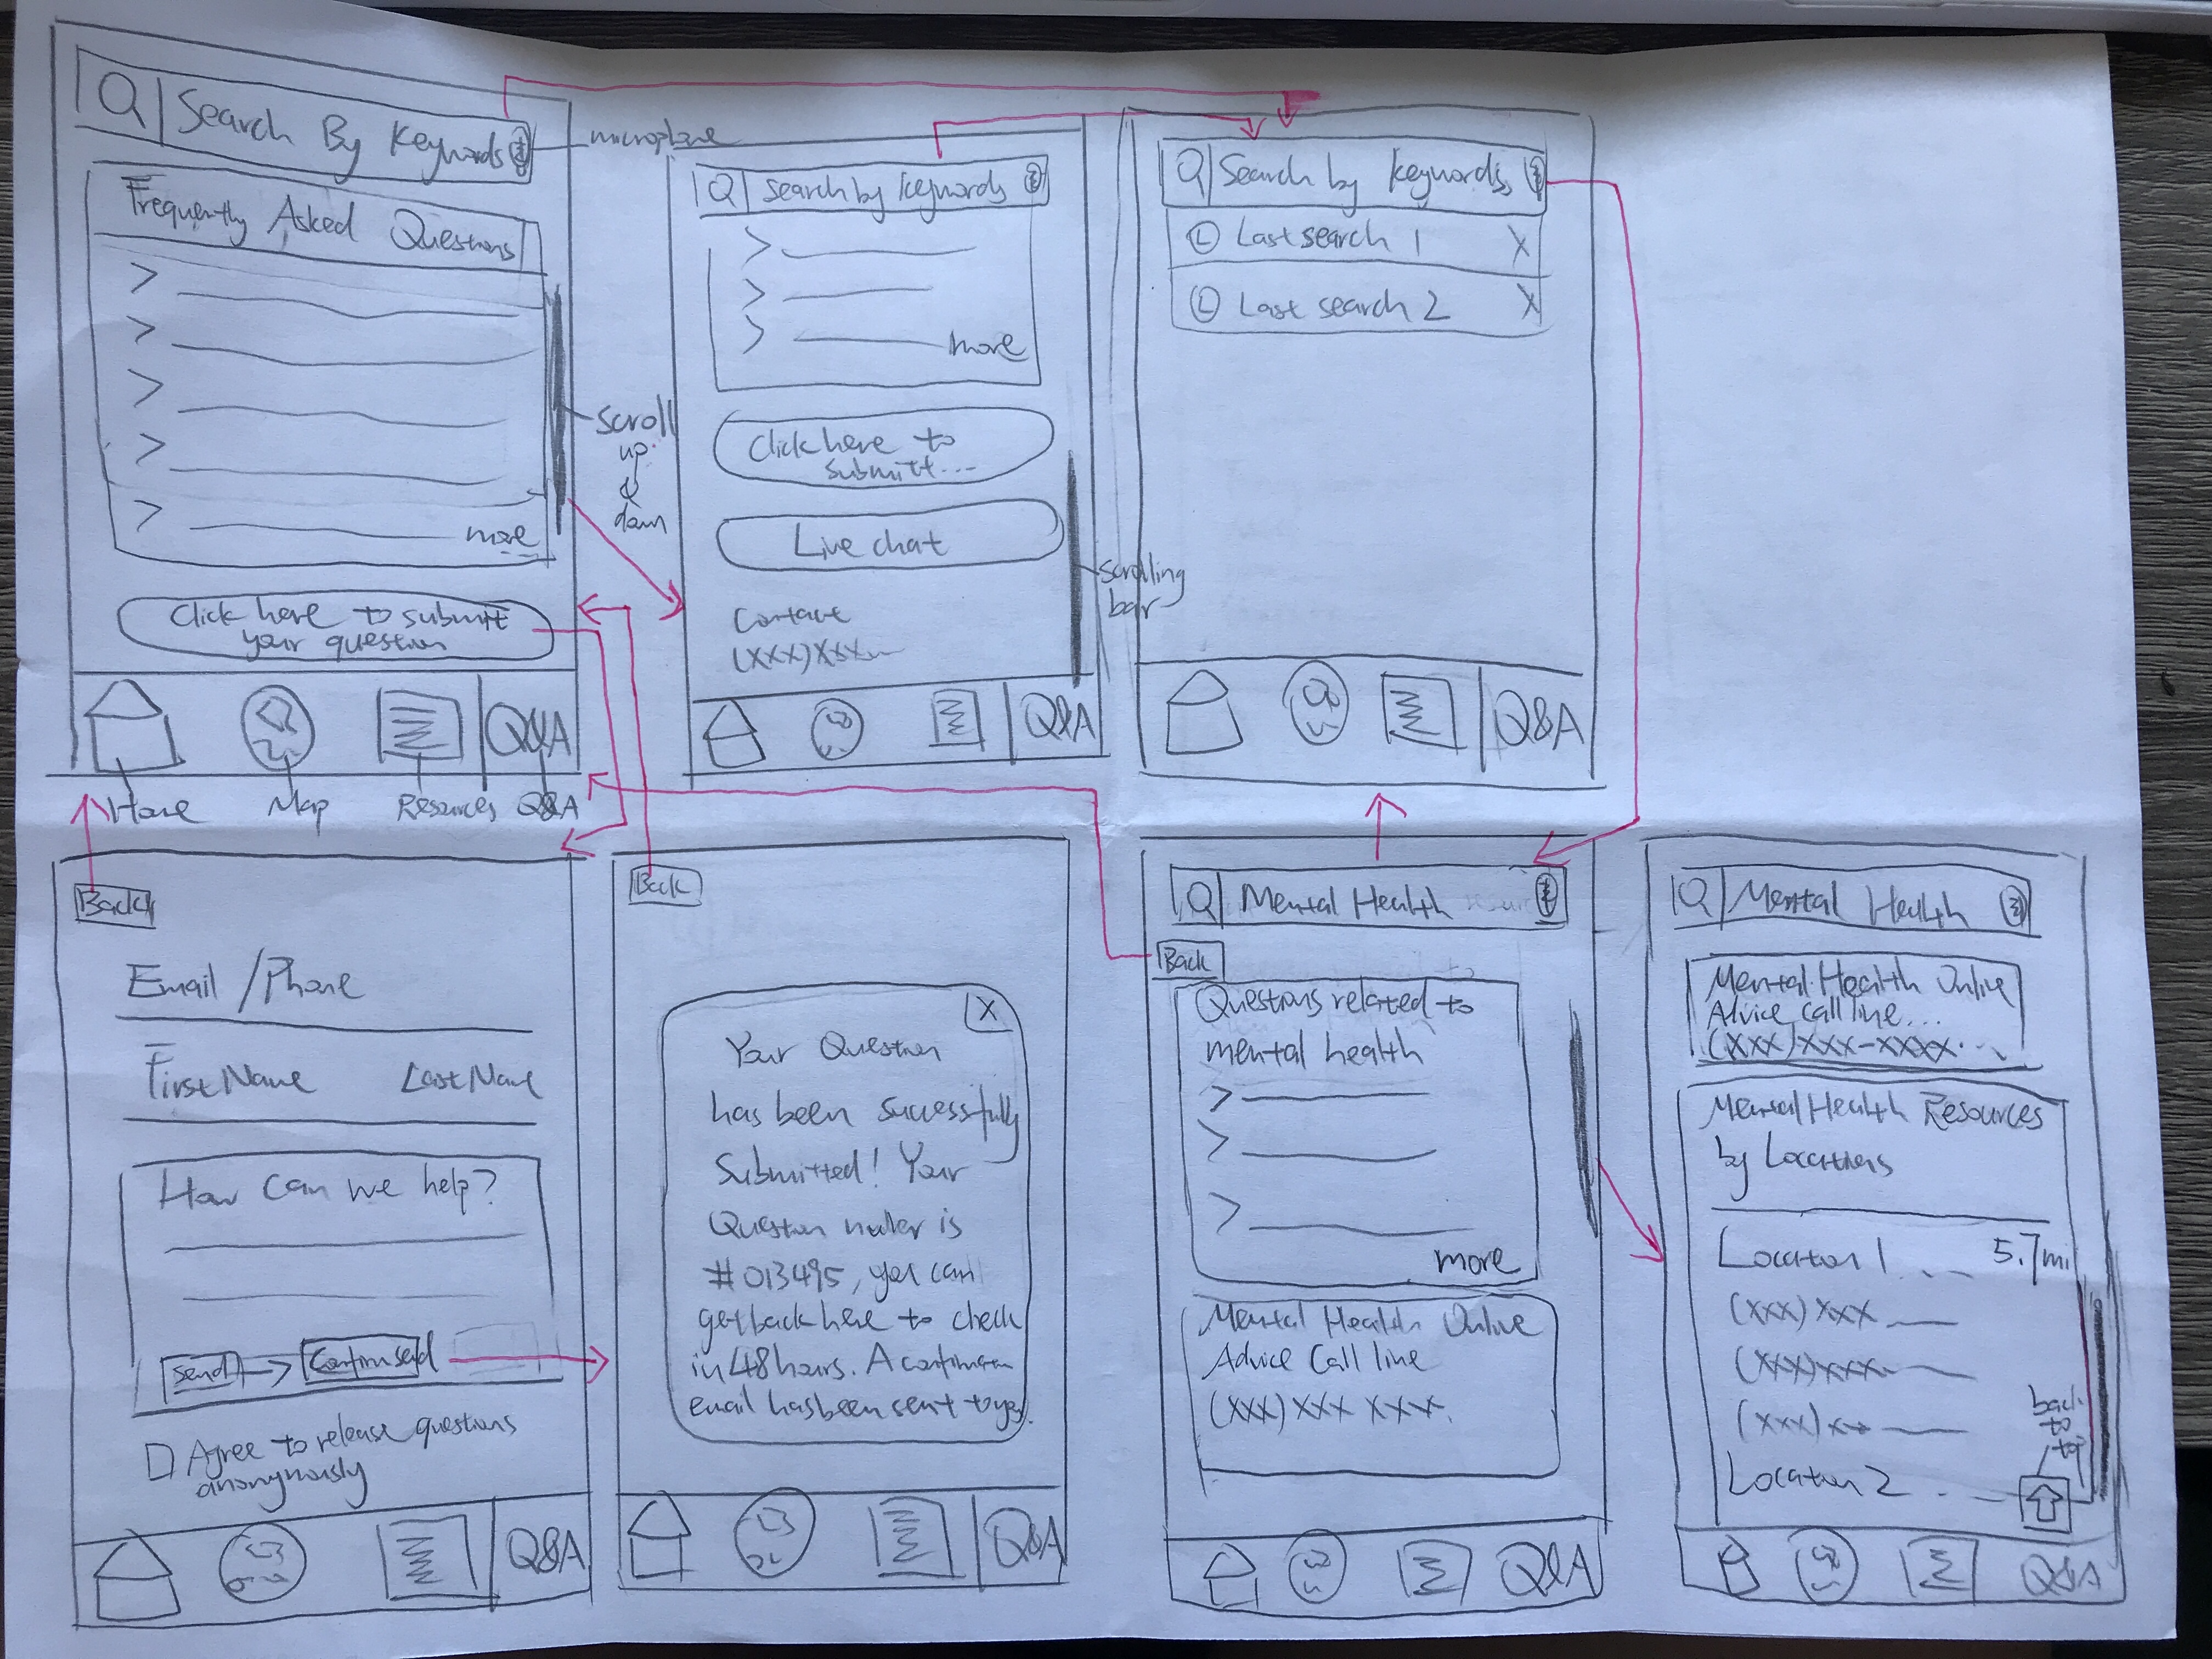 Search By Keywords
microphone
Frequently Asked Questions
more
Scroll
up
&
down
Click here to submit
your question
Q&A
Home Map Resources Q&A
Search by Keywords
more
Click here to
submitt...
Live chat
Contact
(XXX)XXX
scrolling
bar
Q&A
Search by Keywords
Last search 1 X
Last search 2 X
Q&A
Back
Email / Phone
First Name Last Name
How can we help?
Send -> Confirm send
Agree to release questions
anonymously
Q&A
Back
X
Your Question
has been successfully
Submitted! Your
Question number is
#013495, you can
get back here to check
in 48 hours. A confirmation
email has been sent to you.
Q&A
Mental Health
Back
Questions related to
mental health
more
Mental Health Online
Advice Call line
(XXX) XXX XXX.
Q&A
Mental Health
Mental Health Online
Advice call line...
(XXX)XXX-XXXX...
Mental Health Resources
by Locations
Location 1 ... 5.7mi
(XXX) XXX
(XXX)XXX
(XXX)XX
back
to
top
Location 2
Q&A